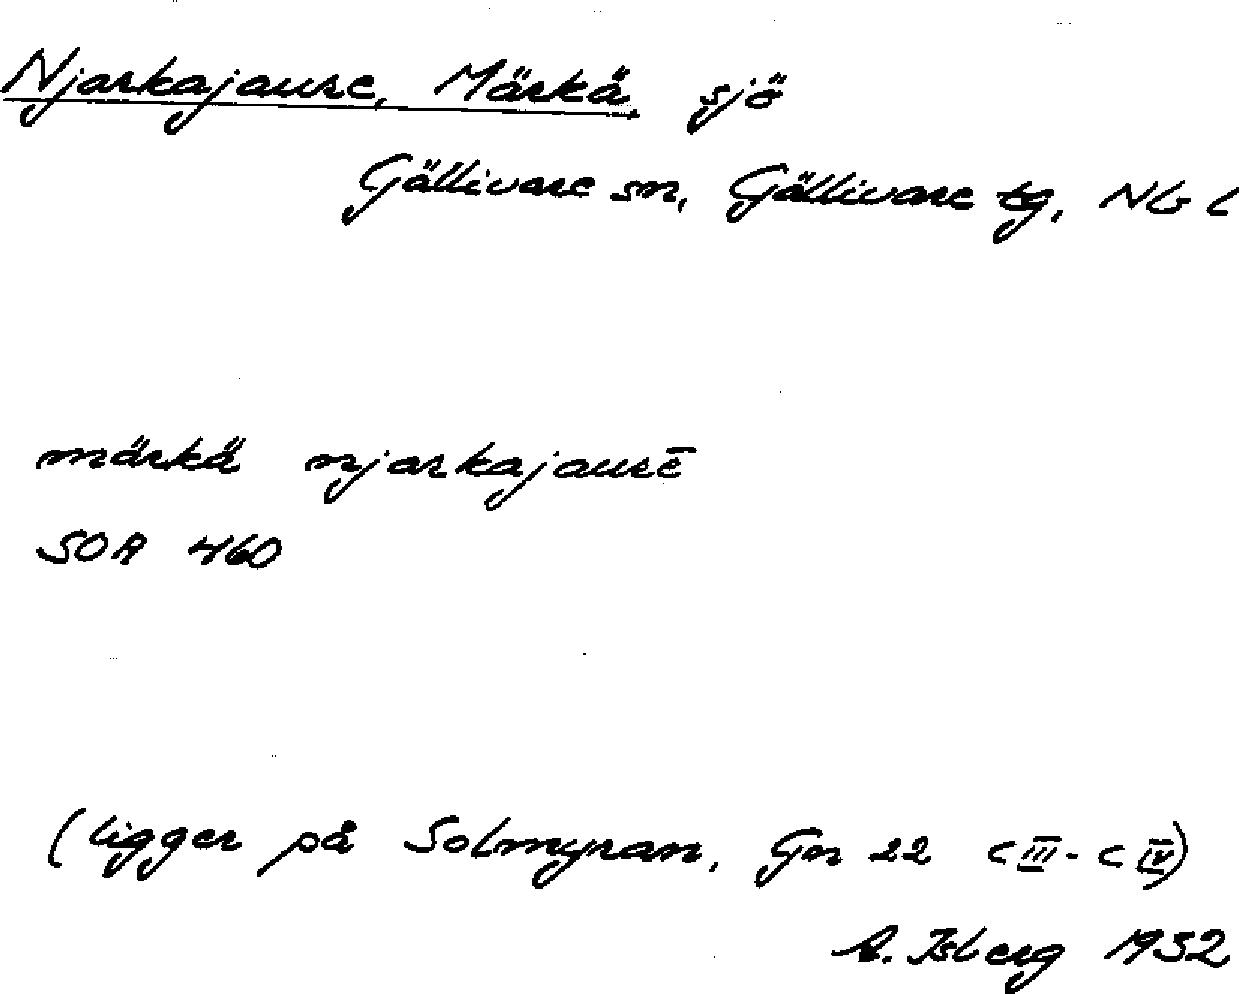 Njarkajaure, Märkä, sjö
Gällivare sn, Gällivare tg, Nb l
märkä njarkajaurē
SOA 460
(ligger på Solmyran, Gn 22 c III - c IV)
A. Isberg 1932